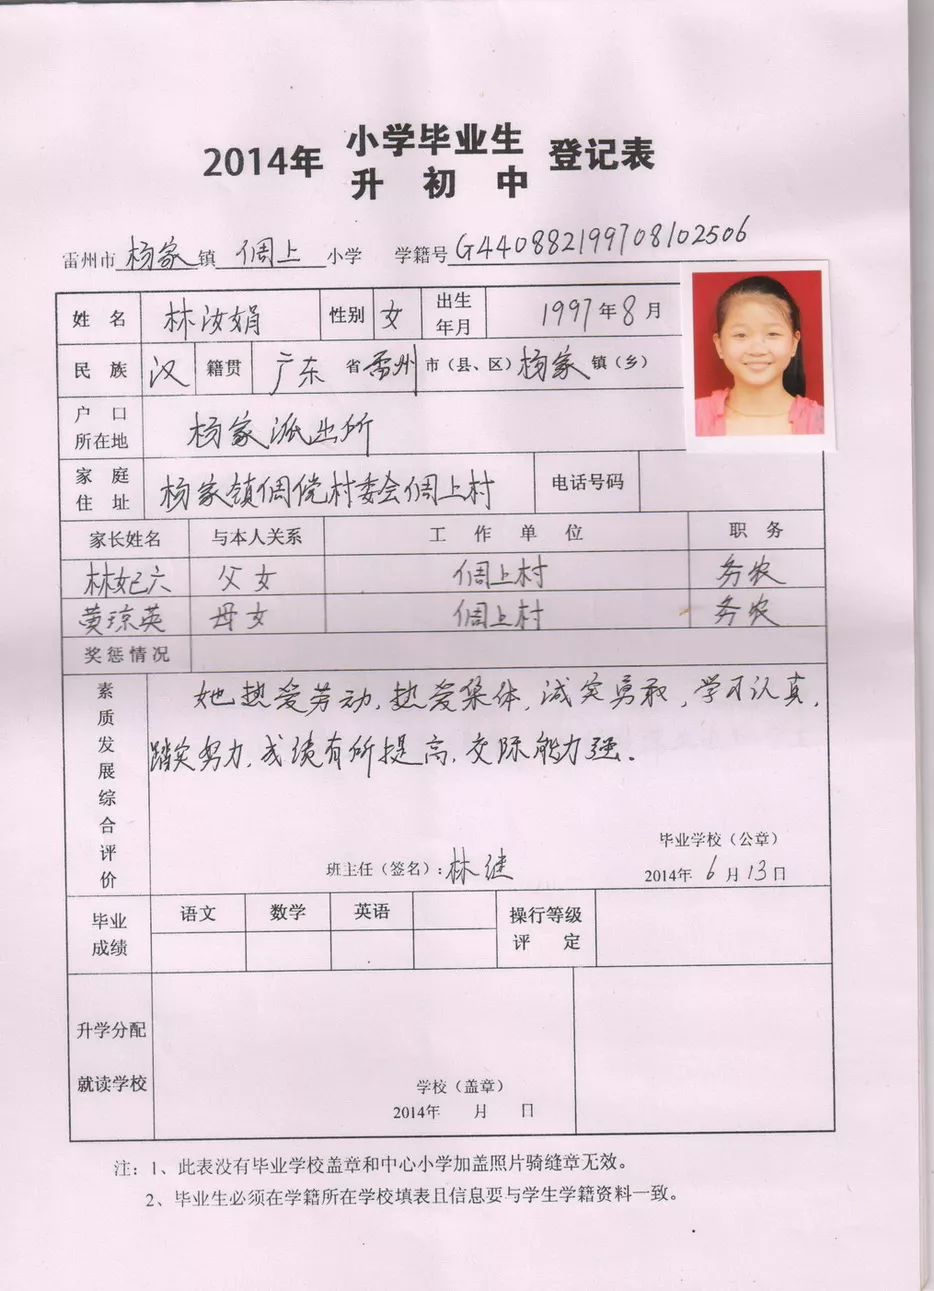 2014年 小学毕业生 升初中 登记表
雷州市杨家镇 倜上 小学 学籍号 G440882199708102506
姓名 林汝娟 性别 女 出生年月 1997年8月
民族 汉 籍贯 广东省雷州市(县、区)杨家镇(乡)
户口所在地 杨家派出所
家庭住址 杨家镇倜傥村委会倜上村 电话号码
家长姓名 与本人关系 工作单位 职务
林妃六 父女 倜上村 务农
黄琼英 母女 倜上村 务农
奖惩情况
素质发展综合评价
她热爱劳动,热爱集体,诚实勇敢,学习认真,
踏实努力,成绩有所提高,交际能力强.
毕业学校(公章)
班主任(签名):林继 2014年6月13日
毕业成绩 语文 数学 英语 操行等级评定
升学分配
就读学校
学校(盖章)
2014年 月 日
注:1、此表没有毕业学校盖章和中心小学加盖照片骑缝章无效。
2、毕业生必须在学籍所在学校填表且信息要与学生学籍资料一致。